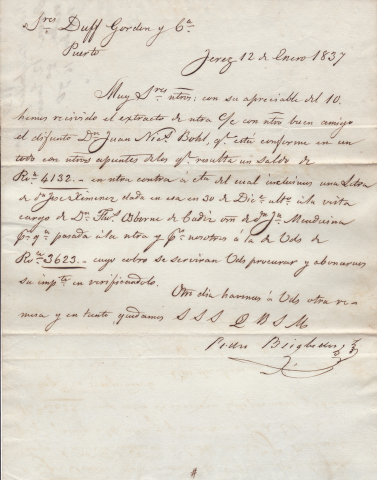 Sres Duff Gordon y Ca
Puerto
Jerez 12 de Enero 1837
Muy Sres ntros: con su apreciable del 10.
hemos recivido el extracto de ntra C/c con ntro buen amigo
el difunto Dn Juan Nics Bohl, qe está conforme en un
todo con ntros apuntes de los qe resulta un saldo de
Rsn 4132. - en ntra contra á cta del cual incluimos una Letra
de Dn Jose Ximenez dada en esa en 30 de Dice ulto á la vista
cargo de Dn Thos Osborne de Cadiz orn de Dn Jn Mendicina
pr qn pasada á la ntra y pr nosotros á la de Vds de
Rsn 3623. - cuyo cobro se serviran Vds procurar y abonarnos
su impte en verificandolo.
Otro dia haremos á Vds otra re-
mesa y en tanto, quedamos S S S Q B S M
Pedro Beigbeder